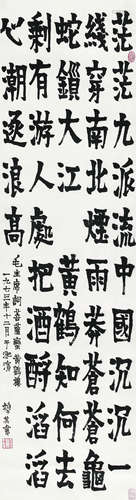 茫茫九派流中國沉沉一
綫穿南北煙雨莽蒼蒼龜
蛇鎖大江黃鶴知何去
剩有游人處把酒酹滔滔
心潮逐浪高
毛主席詞菩薩蠻黃鶴樓
一九七三年十二月于
書